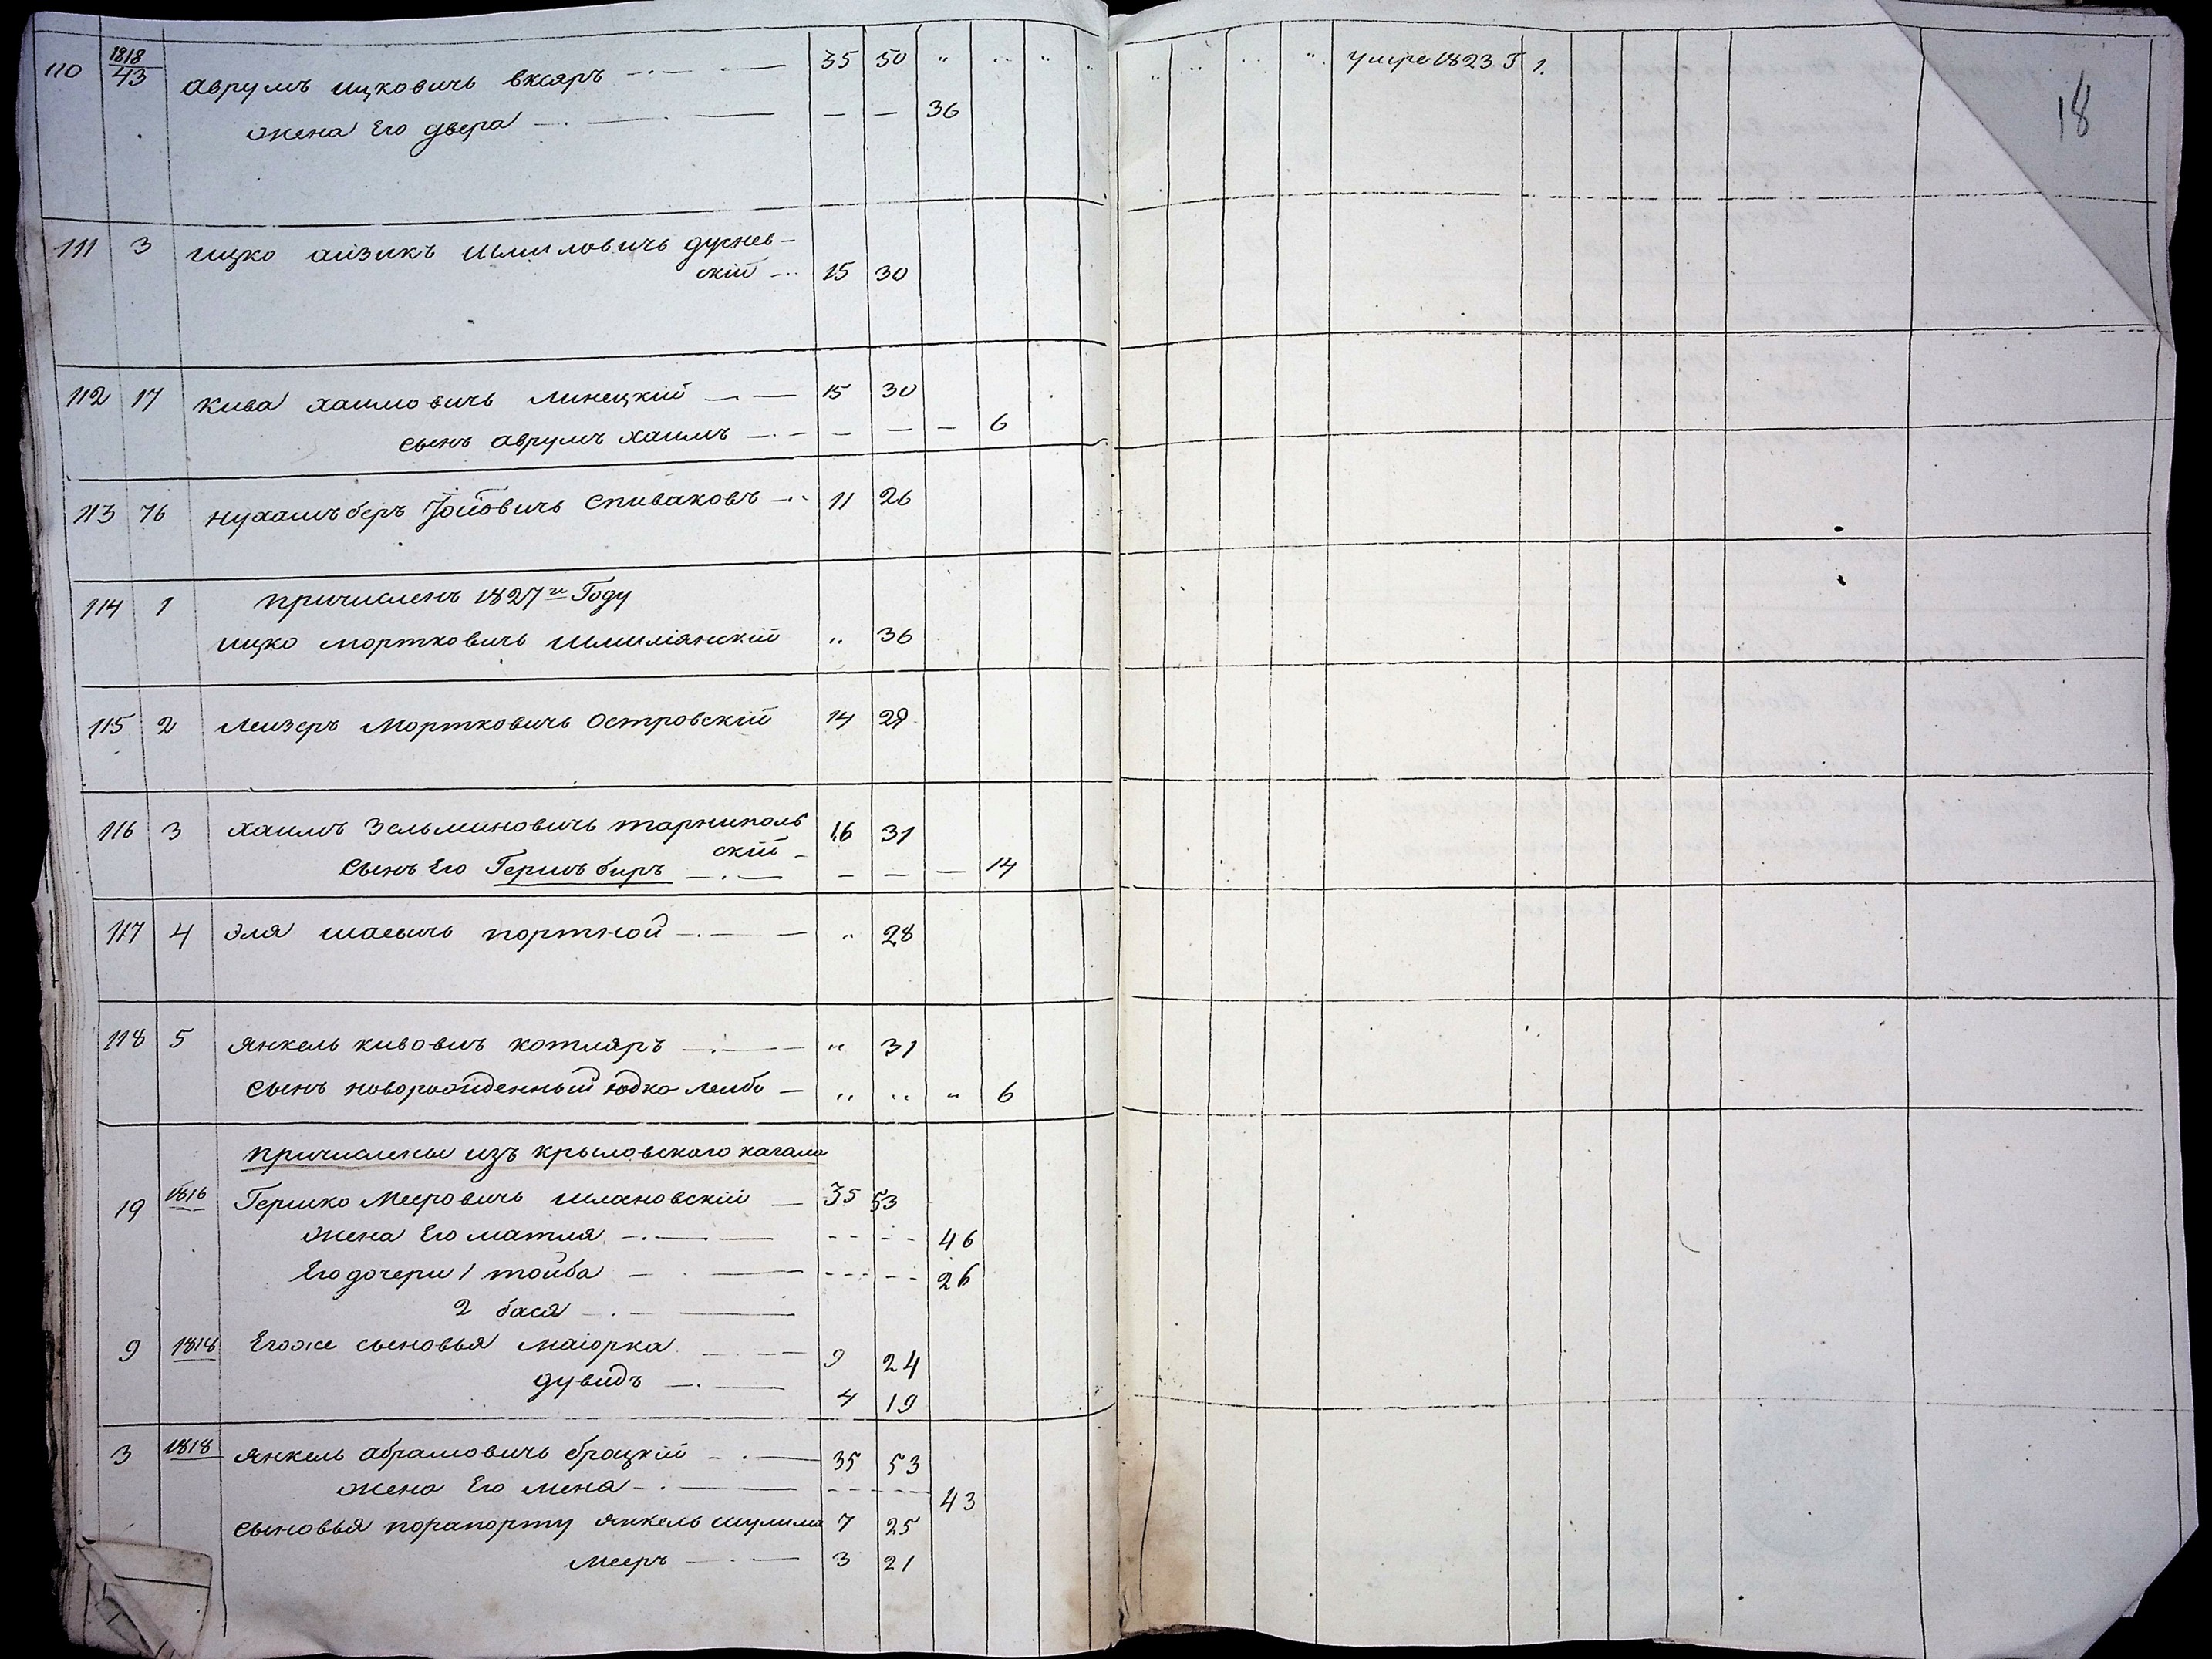 18
110 1818/43 аврумъ ицковичь вксяръ — 35 50 " " " " " " " умре 1823 Г 1.
жена Его двера — — — 36
111 3 ицко аизикъ Шмиловичь дуснев-
скій — 15 30
112 17 кива хаимовичь линецкій — 15 30
сынъ аврумъ хаимъ — — — — 6
113 76 нухамъ беръ Іойовичь Спиваковъ — 11 26
114 1 причисленъ 1827го Году
ицко мортковичь шлимянскій " 36
115 2 Леизеръ Мортковичь Островскій 14 29
116 3 хаимъ Зельминовичь тарниполь
скій — 16 31
Сынъ Его Гершъ биръ — — — — 14
117 4 эля шаевичь портной — " 28
118 5 янкель кивовичъ котляръ — " 31
Сынъ новорожденный юдко леибъ — " " " 6
причислены изъ крыловского кагала
19 1816 Гершко Меировичь шлановскій — 35 53
жена Его матля — — — 46
Его дочери 1 тойба — — — 26
2 бася —
9 1818 Егоже сыновья маіорка — 9 24
дувидъ — 4 19
3 1818 янкель абрамовичь брацкій — 35 53
жена Его меня — — — 43
сыновья порапорту янкель шулима 7 25
Мееръ — 3 21